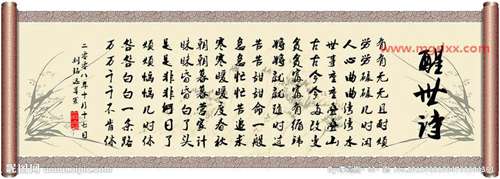 醒世诗
有有无无且耐烦
劳劳碌碌几时闲
人心曲曲湾湾水
世事重重叠叠山
古古今今多改变
贫贫富富有循环
将将就就随时过
苦苦甜甜命一般
急急忙忙苦追求
寒寒暖暖度春秋
朝朝暮暮营家计
昧昧昏昏白了头
是是非非何日了
烦烦恼恼几时休
白白一条路
万万千千不肯修
二零零八年十月十七日